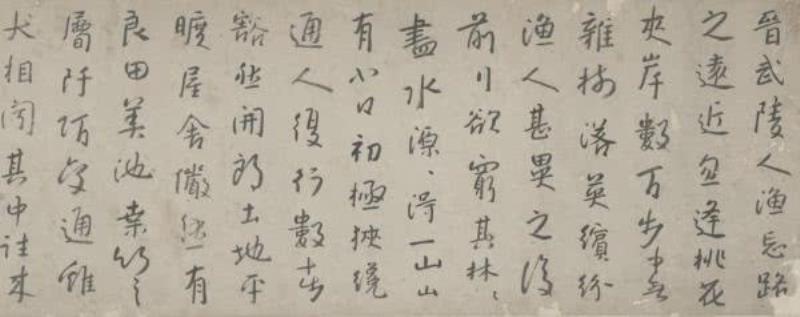 晉武陵人漁忘路
之遠近忽逢桃花
夾岸數百步中無
雜樹落英繽紛
漁人甚異之復
前行欲窮其林〻
盡水源〻得一山山
有小口初極狹纔
通人復行數十步
豁然開朗土地平
曠屋舍儼然有
良田美池桑竹之
屬阡陌交通雞
犬相聞其中往來